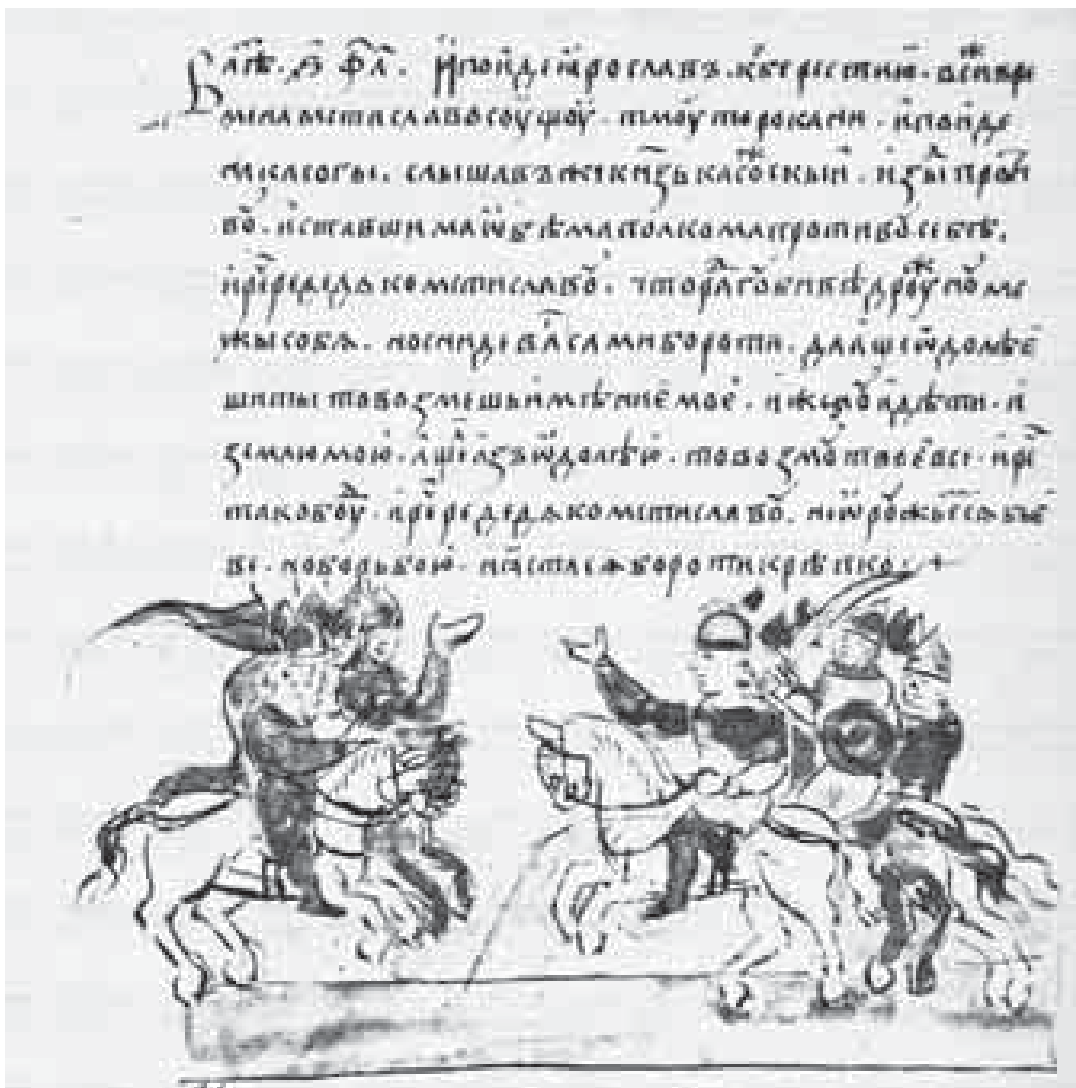 В лѣт҃. ҂ѕ҃ ф҃ л҃. и поиде ꙗрославъ. к берестию. в си же вре
мена мстиславоу соущоу. тмоутороканн. и поиде
на касогы. слышавъ же кнѧзь касожскый. изыде проти
воу. и ставшима ѡбѣма полкома противоу себѣ.
и реч редедѧ ко мстиславоу. что ради гоубивѣ дроужиноу ме
жи собѧ. но снидевасѧ сами боротъ. да аще ѡдолѣе
ши ты то возмеши имѣние мое. и женоу и дѣти. и
землю мою. аще ли азъ ѡдолѣю. то возмоу твое все. и реч
тако боуди. и реч редедѧ ко мстиславоу. не ѡроужьемь сѧ бье
вѣ. но борьбою. и ꙗстасѧ боротисѧ крѣпко.